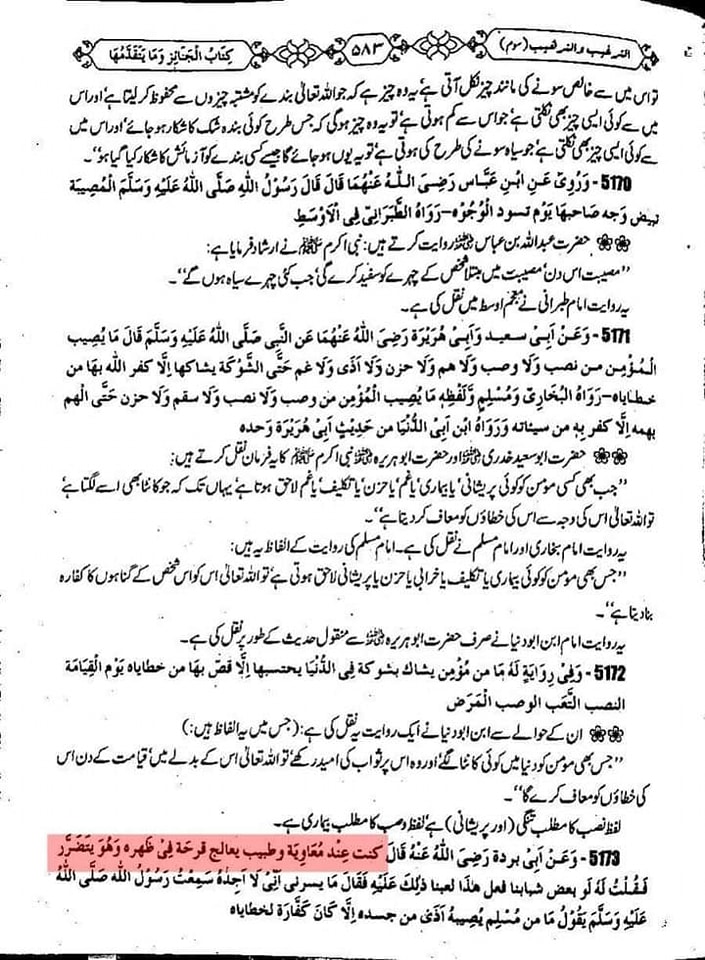 الترغیب والترہیب (سوم)
۵۸۳
کِتَابُ الْجَنَائِزِ وَمَا یَتَقَدَّمُهَا
تو اس میں سے خالص سونے کی مانند چیز نکل آتی ہے‘ یہ وہ چیز ہے کہ جو اللہ تعالیٰ بندے کو مشتبہ چیزوں سے محفوظ کر لیتا ہے‘ اور اس
میں سے کوئی ایسی چیز بھی نکلتی ہے‘ جو اس سے کم ہوتی ہے‘ تو یہ وہ چیز ہوگی کہ جس طرح کوئی بندہ شک کا شکار ہو جائے‘ اور اس میں
سے کوئی ایسی چیز بھی نکلتی ہے‘ جو سیاہ سونے کی طرح کی ہوتی ہے‘ تو یہ یوں ہو جائے گا جیسے کسی بندے کو آزمائش کا شکار کیا گیا ہو“۔
5170 - وَرُوِیَ عَنِ ابْنِ عَبَّاس رَضِیَ اللّٰهُ عَنْهُمَا قَالَ قَالَ رَسُوْلُ اللهِ صَلَّی اللّٰهُ عَلَیْهِ وَسَلَّمَ الْمُصِیبَة
تبیض وَجه صَاحبهَا یَوْم تسود الْوُجُوْه – رَوَاهُ الطَّبَرَانِیّ فِی الْاَوْسَطِ
حضرت عبداللہ بن عباس رضی اللہ عنہما روایت کرتے ہیں: نبی اکرم ﷺ نے ارشاد فرمایا ہے:
”مصیبت اس دن‘ مصیبت میں مبتلا شخص کے چہرے کو سفید کرے گی‘ جب کئی چہرے سیاہ ہوں گے“۔
یہ روایت امام طبرانی نے معجم اوسط میں نقل کی ہے۔
5171 - وَعَنْ اَبِیْ سعید وَاَبِیْ هُرَیْرَة رَضِیَ اللّٰهُ عَنْهُمَا عَنِ النَّبِی صَلَّی اللّٰهُ عَلَیْهِ وَسَلَّمَ قَالَ مَا یُصِیب
الْمُؤْمِن من نصب وَلَا وصب وَلَا هم وَلَا حزن وَلَا اَذَی وَلَا غم حَتَّی الشَّوْكَة یشاكها اِلَّا كفر الله بهَا من
خطایاه – رَوَاهُ الْبُخَارِیّ وَمُسْلِم وَلَفْظِهِ مَا یُصِیب الْمُؤْمِن من وصب وَلَا نصب وَلَا سقم وَلَا حزن حَتَّی الْهم
یهمه اِلَّا كفر بِهِ من سیئاته وَرَوَاهُ ابْن اَبِی الدُّنْیَا من حَدِیْثِ اَبِیْ هُرَیْرَة وَحده
حضرت ابو سعید خدری رضی اللہ عنہ اور حضرت ابو ہریرہ رضی اللہ عنہ نبی اکرم ﷺ کا یہ فرمان نقل کرتے ہیں:
”جب بھی کسی مؤمن کو کوئی پریشانی‘ یا بیماری‘ یا غم‘ یا حزن‘ یا تکلیف‘ یا غم لاحق ہوتا ہے‘ یہاں تک کہ جو کانٹا بھی اسے لگتا ہے‘
تو اللہ تعالیٰ اس کی وجہ سے اس کی خطاؤں کو معاف کر دیتا ہے“۔
یہ روایت امام بخاری اور امام مسلم نے نقل کی ہے۔ امام مسلم کی روایت کے الفاظ یہ ہیں:
”جس بھی مؤمن کو کوئی بیماری یا تکلیف یا خرابی یا حزن یا پریشانی لاحق ہوتی ہے‘ تو اللہ تعالیٰ اس کو اس شخص کے گناہوں کا کفارہ
بنا دیتا ہے“۔
یہ روایت امام ابن ابودنیا نے صرف حضرت ابو ہریرہ رضی اللہ عنہ سے منقول حدیث کے طور پر نقل کی ہے۔
5172 - وَفِیْ رِوَایَةٍ لَهُ مَا من مُؤْمِن یشاك بشوكة فِی الدُّنْیَا یحتسبها اِلَّا قصّ بهَا من خطایاه یَوْم الْقِیَامَة
النصب التَّعَب الوصب الْمَرَض
ان کے حوالے سے ابن ابودنیا نے ایک روایت یہ نقل کی ہے: (جس میں یہ الفاظ ہیں:)
”جس بھی مؤمن کو دنیا میں کوئی کانٹا لگے‘ اور وہ اس پر ثواب کی امید رکھے‘ تو اللہ تعالیٰ اس کے بدلے میں‘ قیامت کے دن اس
کی خطاؤں کو معاف کرے گا“۔
لفظ نصب کا مطلب تنگی (اور پریشانی) ہے‘ لفظ وصب کا مطلب بیماری ہے۔
5173 - وَعَنْ اَبِیْ بردة رَضِیَ اللّٰهُ عَنْهُ قَالَ كنت عِنْد مُعَاوِیَة وطبیب یعالج قرحَة فِیْ ظهره وَهُوَ یتَضَرَّر
فَقُلْتُ لَهُ لَو بعض شبابنا فعل هٰذَا لعبنا ذٰلِكَ عَلَیْهِ فَقَالَ مَا یسرنی اَنِّیْ لَا اَجِدُهُ سَمِعْتُ رَسُوْلُ الله صَلَّی اللّٰهُ
عَلَیْهِ وَسَلَّمَ یَقُوْلُ مَا من مُسْلِم یُصِیبهُ اَذَی من جسده اِلَّا كَانَ كَفَّارَة لخطایاه